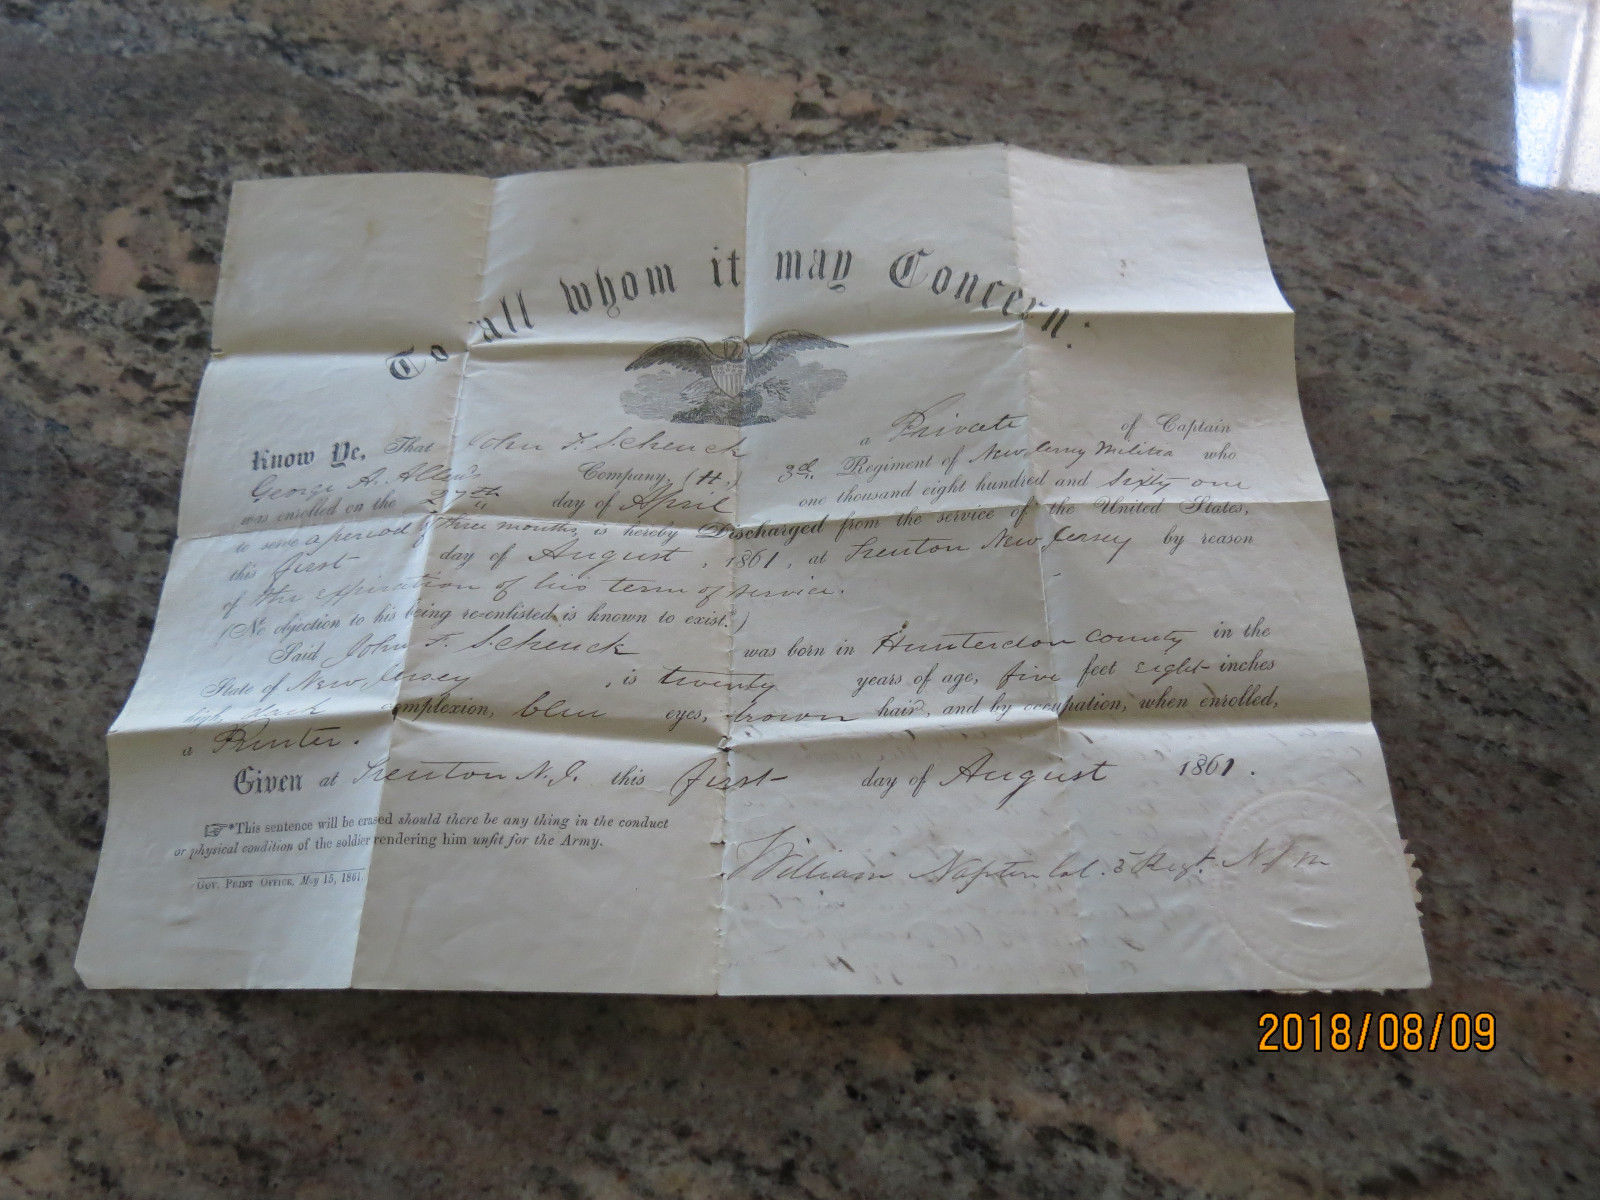 To all whom it may Concern:
Know Ye, That John F. Schenck a Private of Captain
George A. Allen's Company, (H.) 3d. Regiment of New Jersey Militia who
was enrolled on the 27th day of April one thousand eight hundred and Sixty one
to serve a period of Three months, is hereby Discharged from the service of the United States,
this first day of August, 1861, at Trenton New Jersey by reason
of the expiration of his term of service.
(No objection to his being re-enlisted is known to exist.)
Said John F. Schenck was born in Hunterdon County in the
State of New Jersey, is twenty years of age, five feet eight inches
high complexion, blue eyes, brown hair, and by occupation, when enrolled,
a Printer.
Given at Trenton N.J. this first day of August 1861.
☞*This sentence will be erased should there be any thing in the conduct
or physical condition of the soldier rendering him unfit for the Army.
Gov. Print Office, May 15, 1861.
William Napton Col. 3 Regt. N J M
2018/08/09